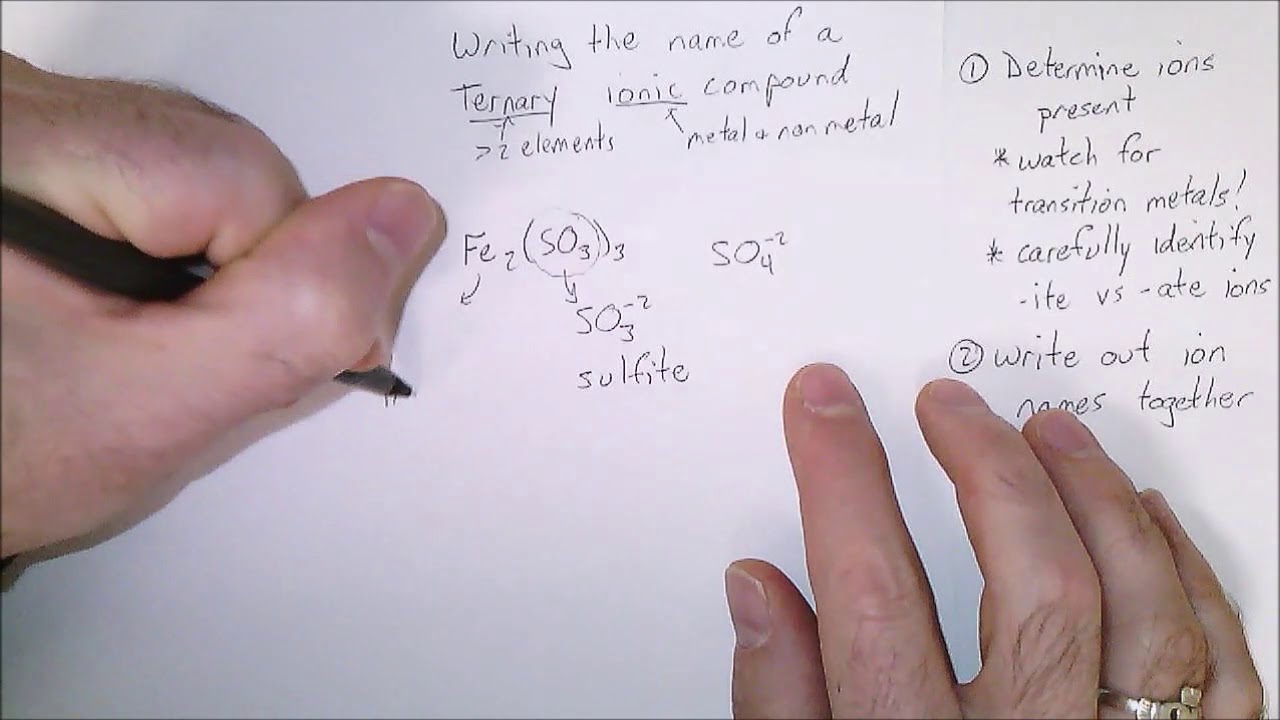 Writing the name of a
Ternary ionic compound
>2 elements metal + nonmetal
Fe₂(SO₃)₃ SO₄⁻²
SO₃⁻²
sulfite
① Determine ions
present
* watch for
transition metals!
* carefully identify
-ite vs -ate ions
② write out ion
names together